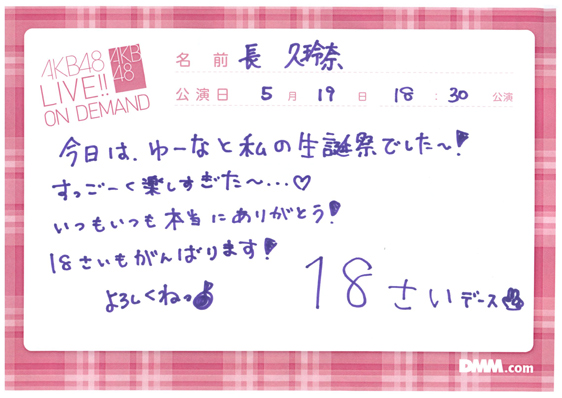 AKB48
LIVE!!
ON DEMAND
AKB
48
名前 長 久玲奈
公演日 5月19日 18:30 公演
今日は、ゆーなと私の生誕祭でした〜!
すっごーく楽しすぎた〜...♡
いつもいつも本当にありがとう!
18さいもがんばります!
よろしくねっ
18さいデース✌
DMM.com